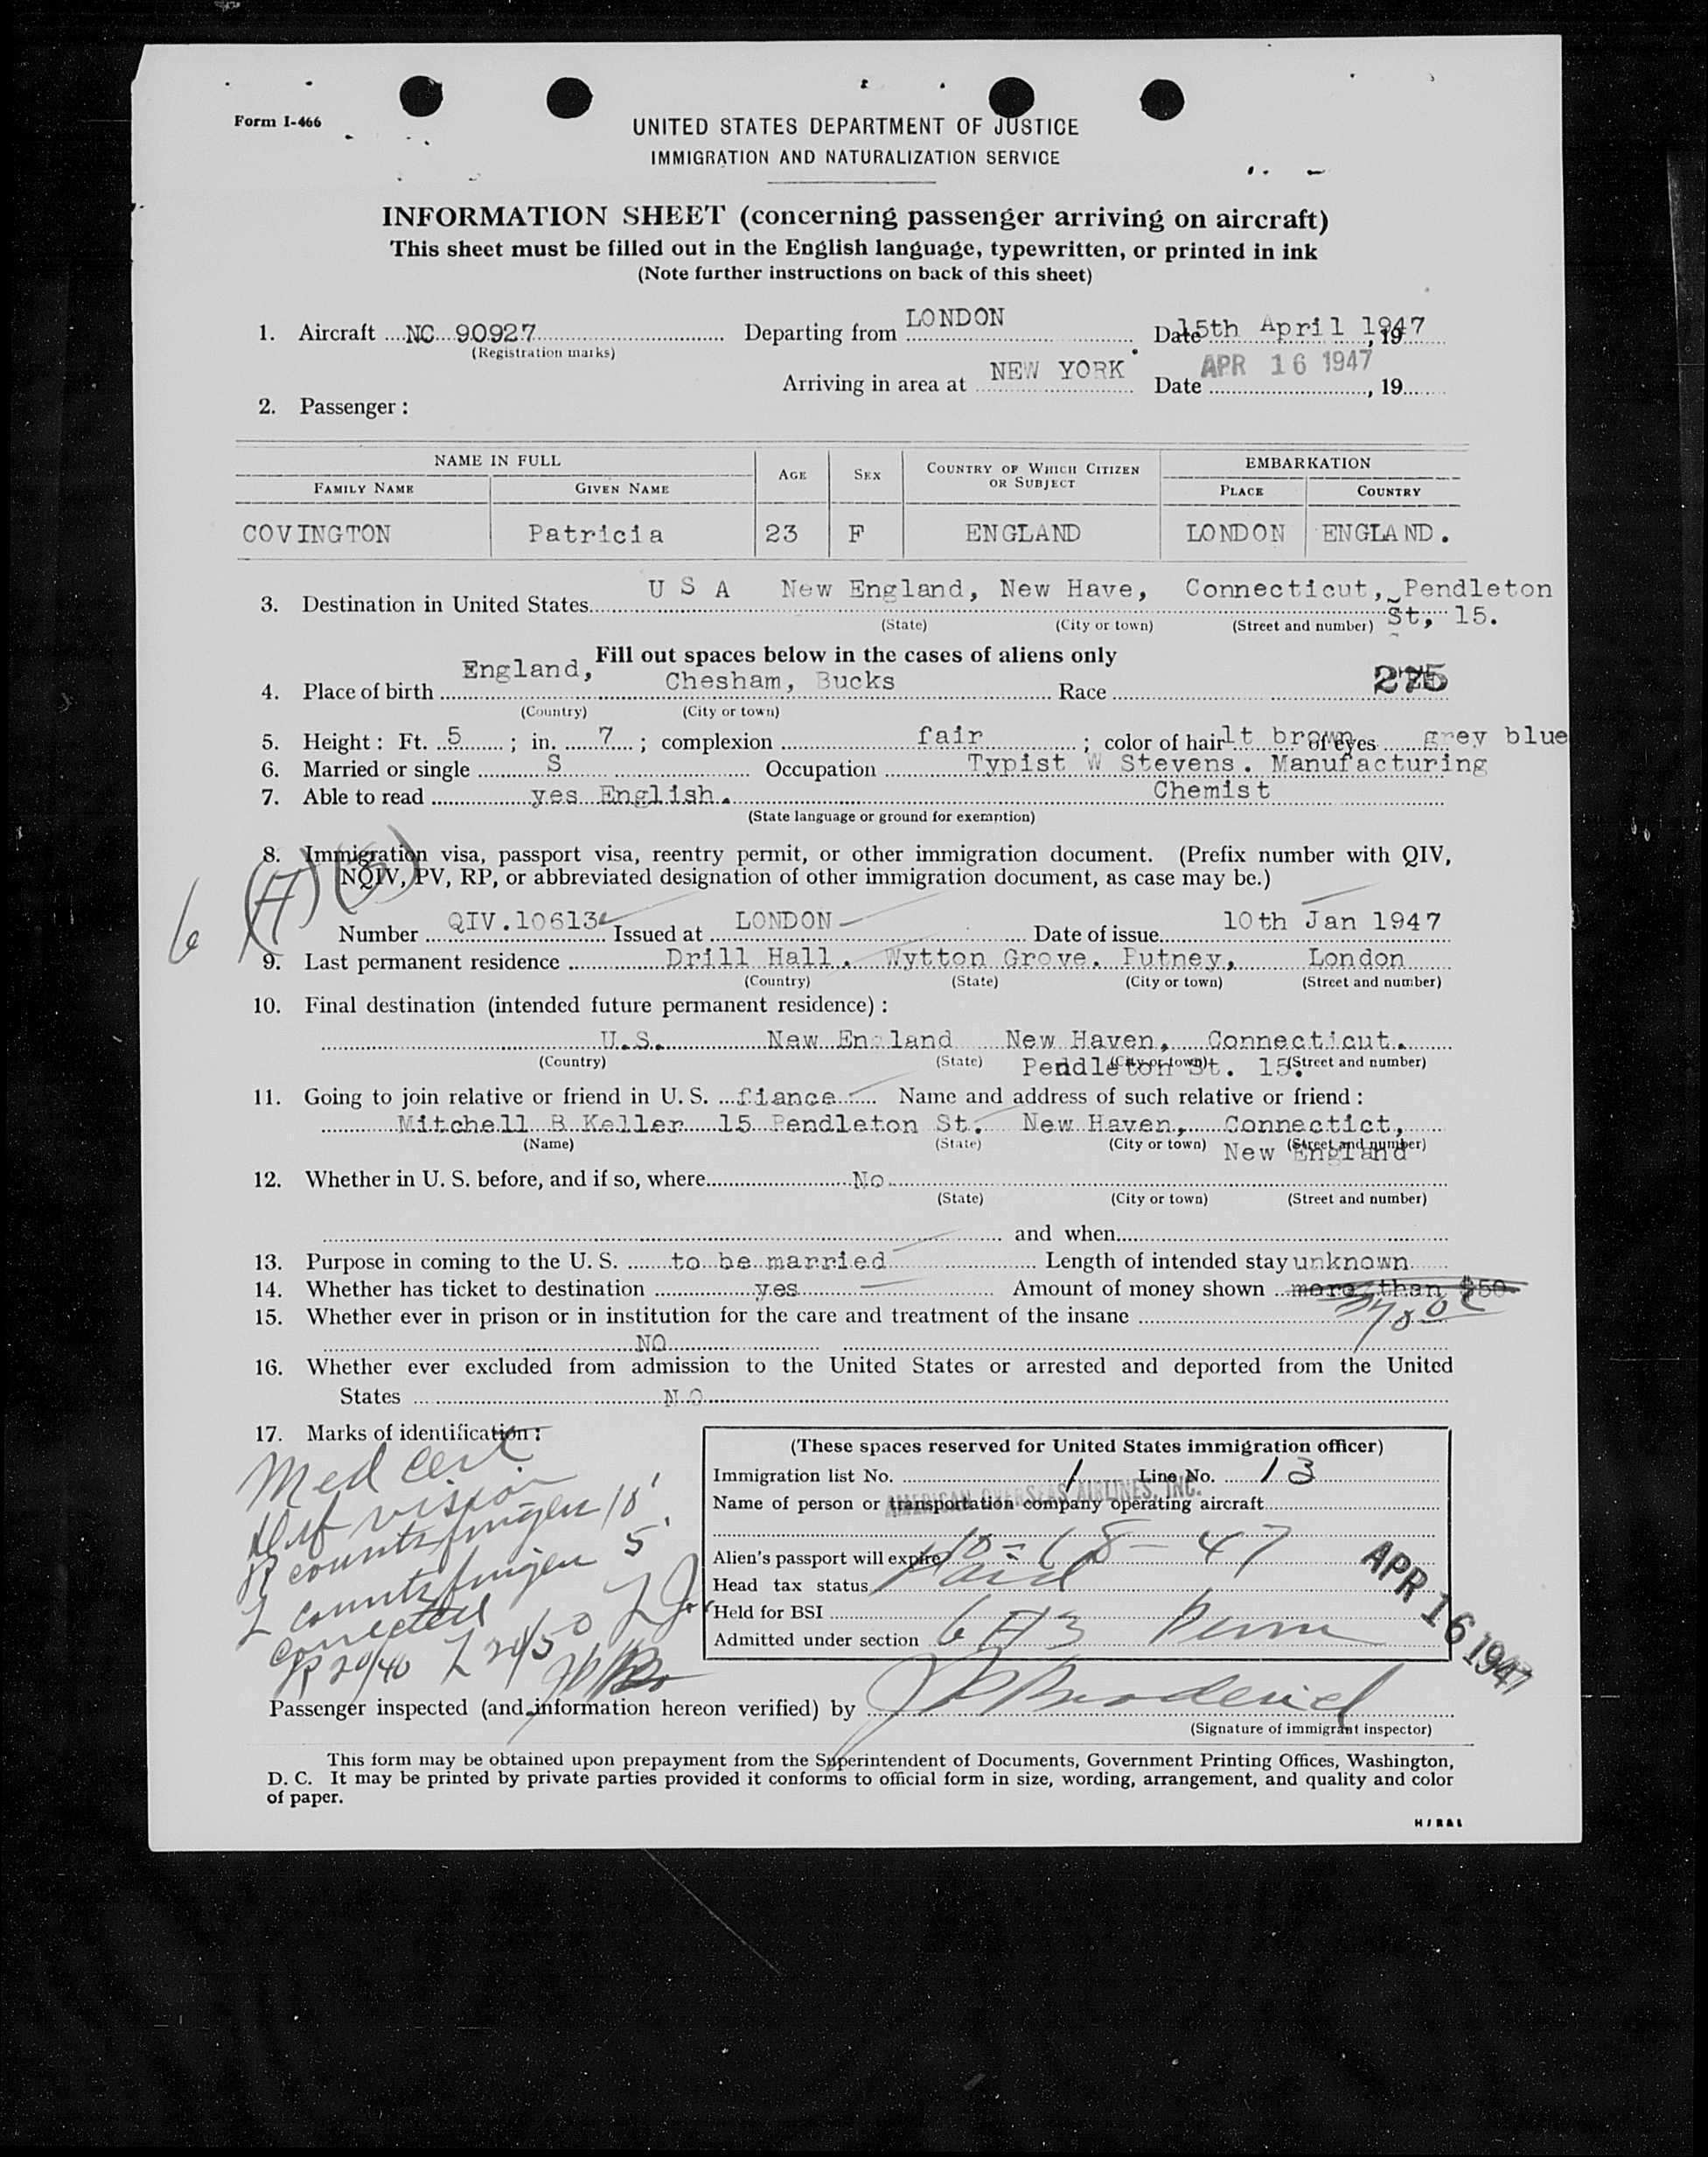 Form I-466
UNITED STATES DEPARTMENT OF JUSTICE
IMMIGRATION AND NATURALIZATION SERVICE
INFORMATION SHEET (concerning passenger arriving on aircraft)
This sheet must be filled out in the English language, typewritten, or printed in ink
(Note further instructions on back of this sheet)
1. Aircraft NC 90927 Departing from LONDON Date 15th April 1947, 19
(Registration marks)
Arriving in area at NEW YORK Date APR 16 1947, 19
2. Passenger:
NAME IN FULL AGE SEX COUNTRY OF WHICH CITIZEN OR SUBJECT EMBARKATION
FAMILY NAME GIVEN NAME PLACE COUNTRY
COVINGTON Patricia 23 F ENGLAND LONDON ENGLAND.
3. Destination in United States U S A New England, New Have, Connecticut, Pendleton
(State) (City or town) (Street and number) St, 15.
Fill out spaces below in the cases of aliens only
4. Place of birth England, Chesham, Bucks Race 275
(Country) (City or town)
5. Height: Ft. 5; in. 7; complexion fair; color of hair lt brown of eyes grey blue
6. Married or single S Occupation Typist W Stevens. Manufacturing
7. Able to read yes English. Chemist
(State language or ground for exemption)
8. Immigration visa, passport visa, reentry permit, or other immigration document. (Prefix number with QIV,
NQIV, PV, RP, or abbreviated designation of other immigration document, as case may be.)
6 (A) (3)
Number QIV.10613 Issued at LONDON Date of issue 10th Jan 1947
9. Last permanent residence Drill Hall. Wytton Grove. Putney, London
(Country) (State) (City or town) (Street and number)
10. Final destination (intended future permanent residence):
U.S. New England New Haven, Connecticut.
(Country) (State) (City or town) (Street and number)
Pendleton St. 15.
11. Going to join relative or friend in U. S. fiance Name and address of such relative or friend:
Mitchell B Keller 15 Pendleton St. New Haven, Connectict,
(Name) (State) (City or town) (Street and number)
New England
12. Whether in U. S. before, and if so, where No
(State) (City or town) (Street and number)
and when
13. Purpose in coming to the U. S. to be married Length of intended stay unknown
14. Whether has ticket to destination yes Amount of money shown more than $50
15. Whether ever in prison or in institution for the care and treatment of the insane
NO
16. Whether ever excluded from admission to the United States or arrested and deported from the United
States NO
17. Marks of identification:
Med cert
Def vision
R counts fingers 10'
L counts fingers 5'
corrected
R 20/40 L 20/50
(These spaces reserved for United States immigration officer)
Immigration list No. 1 Line No. 13
Name of person or transportation company operating aircraft
AMERICAN OVERSEAS AIRLINES, INC.
Alien's passport will expire 10-18-47
Head tax status Paid
Held for BSI
Admitted under section 6 A 3 Perm
APR 16 1947
Passenger inspected (and information hereon verified) by
(Signature of immigrant inspector)
This form may be obtained upon prepayment from the Superintendent of Documents, Government Printing Offices, Washington,
D. C. It may be printed by private parties provided it conforms to official form in size, wording, arrangement, and quality and color
of paper.